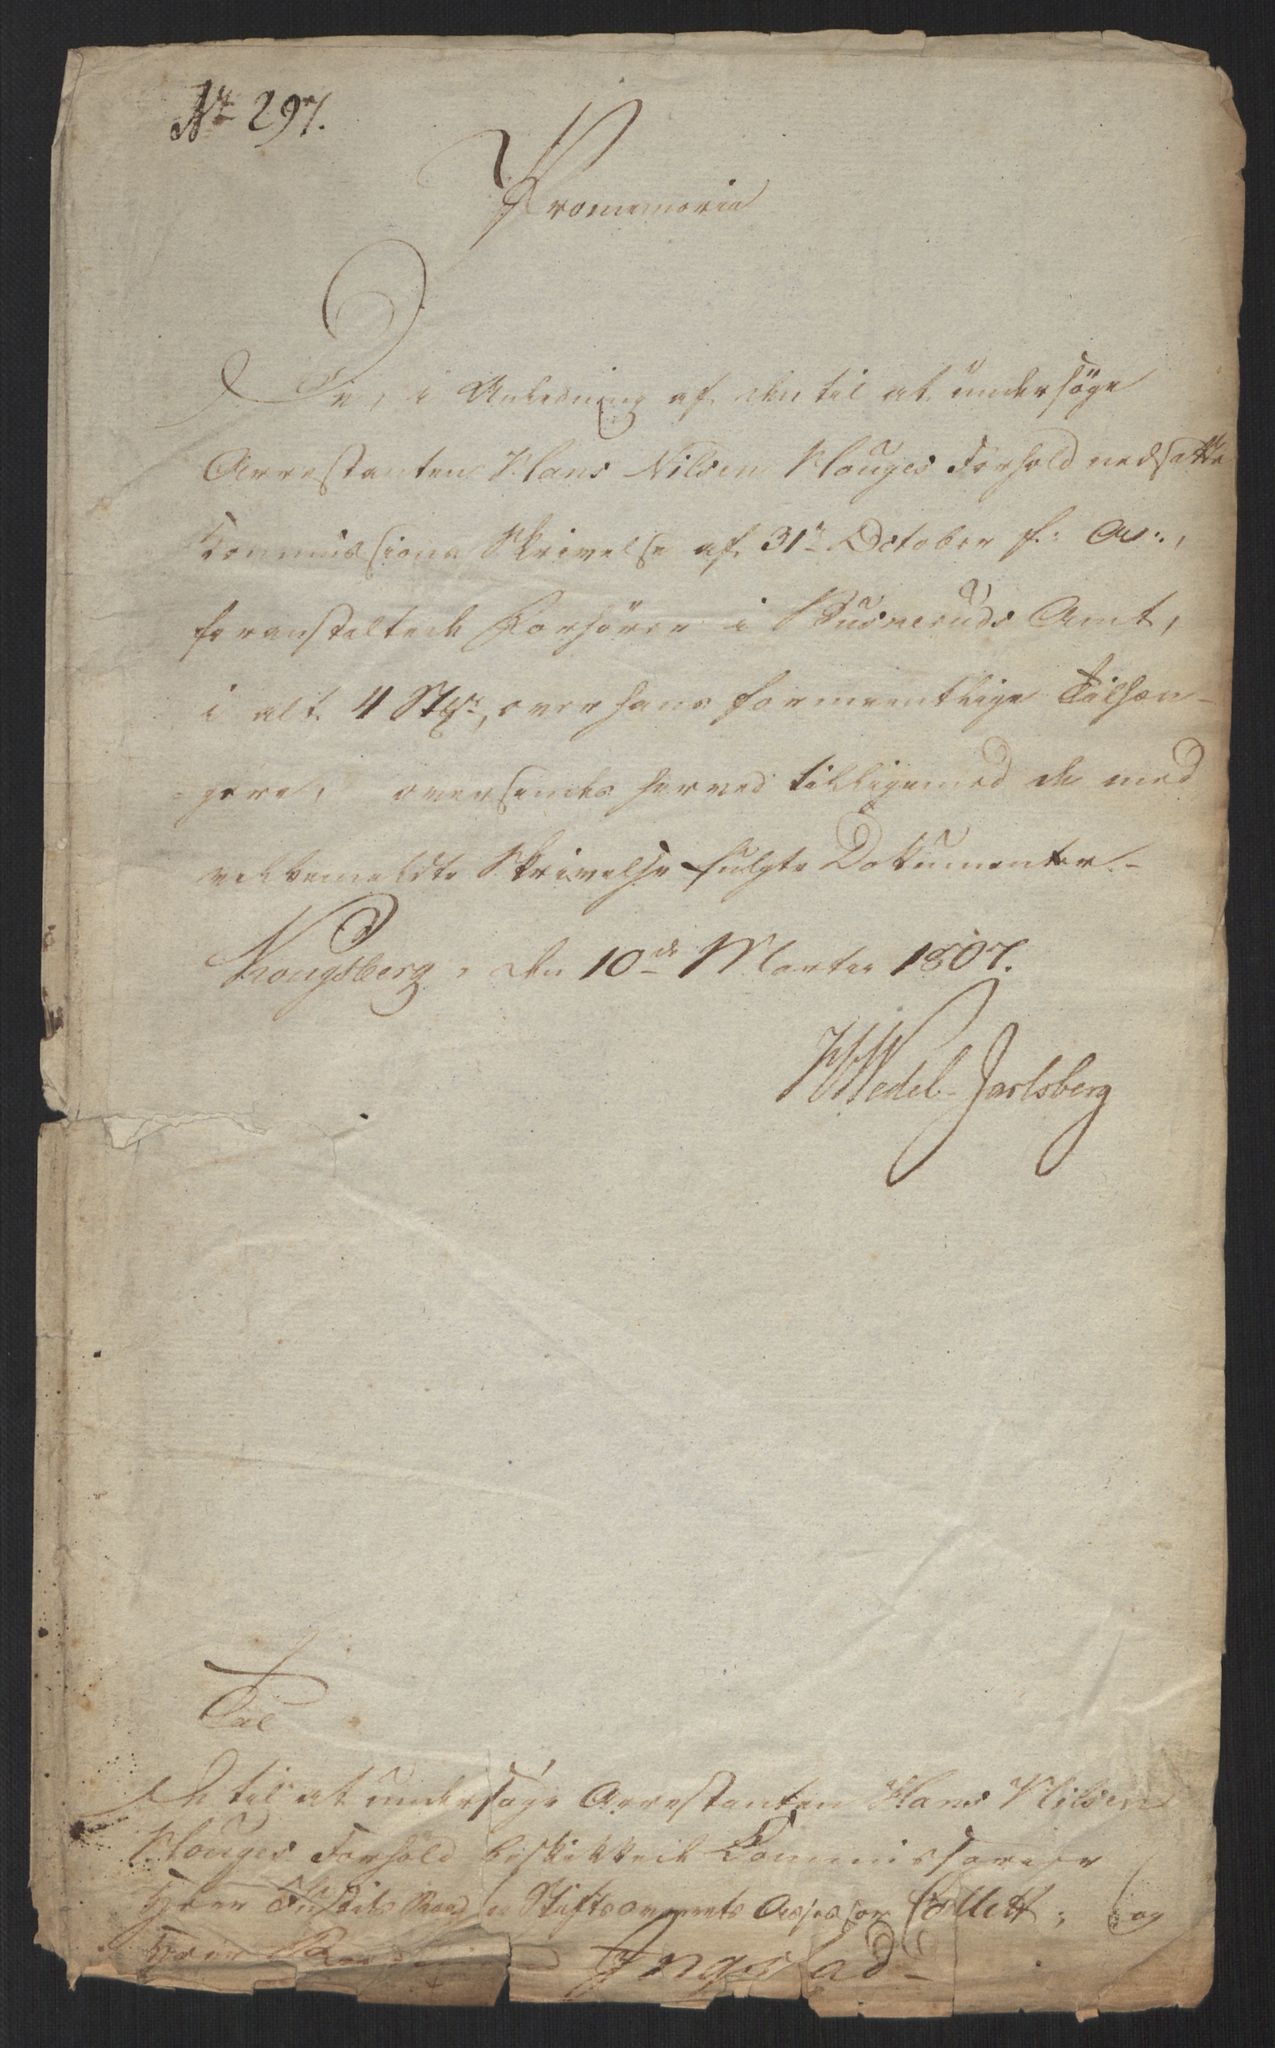 No 297.
Promemoria
De, i Anledning af den til at undersöge
Arrestanten Hans Nilsen Houges Forhold nedsatte
Commissions Skrivelse af 31te October f: A:,
foranstaltede Forhörer i Buskeruds Amt,
i alt 4 Stkr, over hans formeentlige Tilhæn-
gere, oversendes herved tilligemed de med
velbemeldte Skrivelse fulgte Dokumenter.
Kongsberg, den 10de Martii 1807.
H Wedel-Jarlsberg
Til
De til at undersöge Arrestanten Hans Nilsen
Houges Forhold beskikkede Commissarier
Herr Justits Raad og Stiftsoverrets Assessor Collett, og
Herr Ingstad